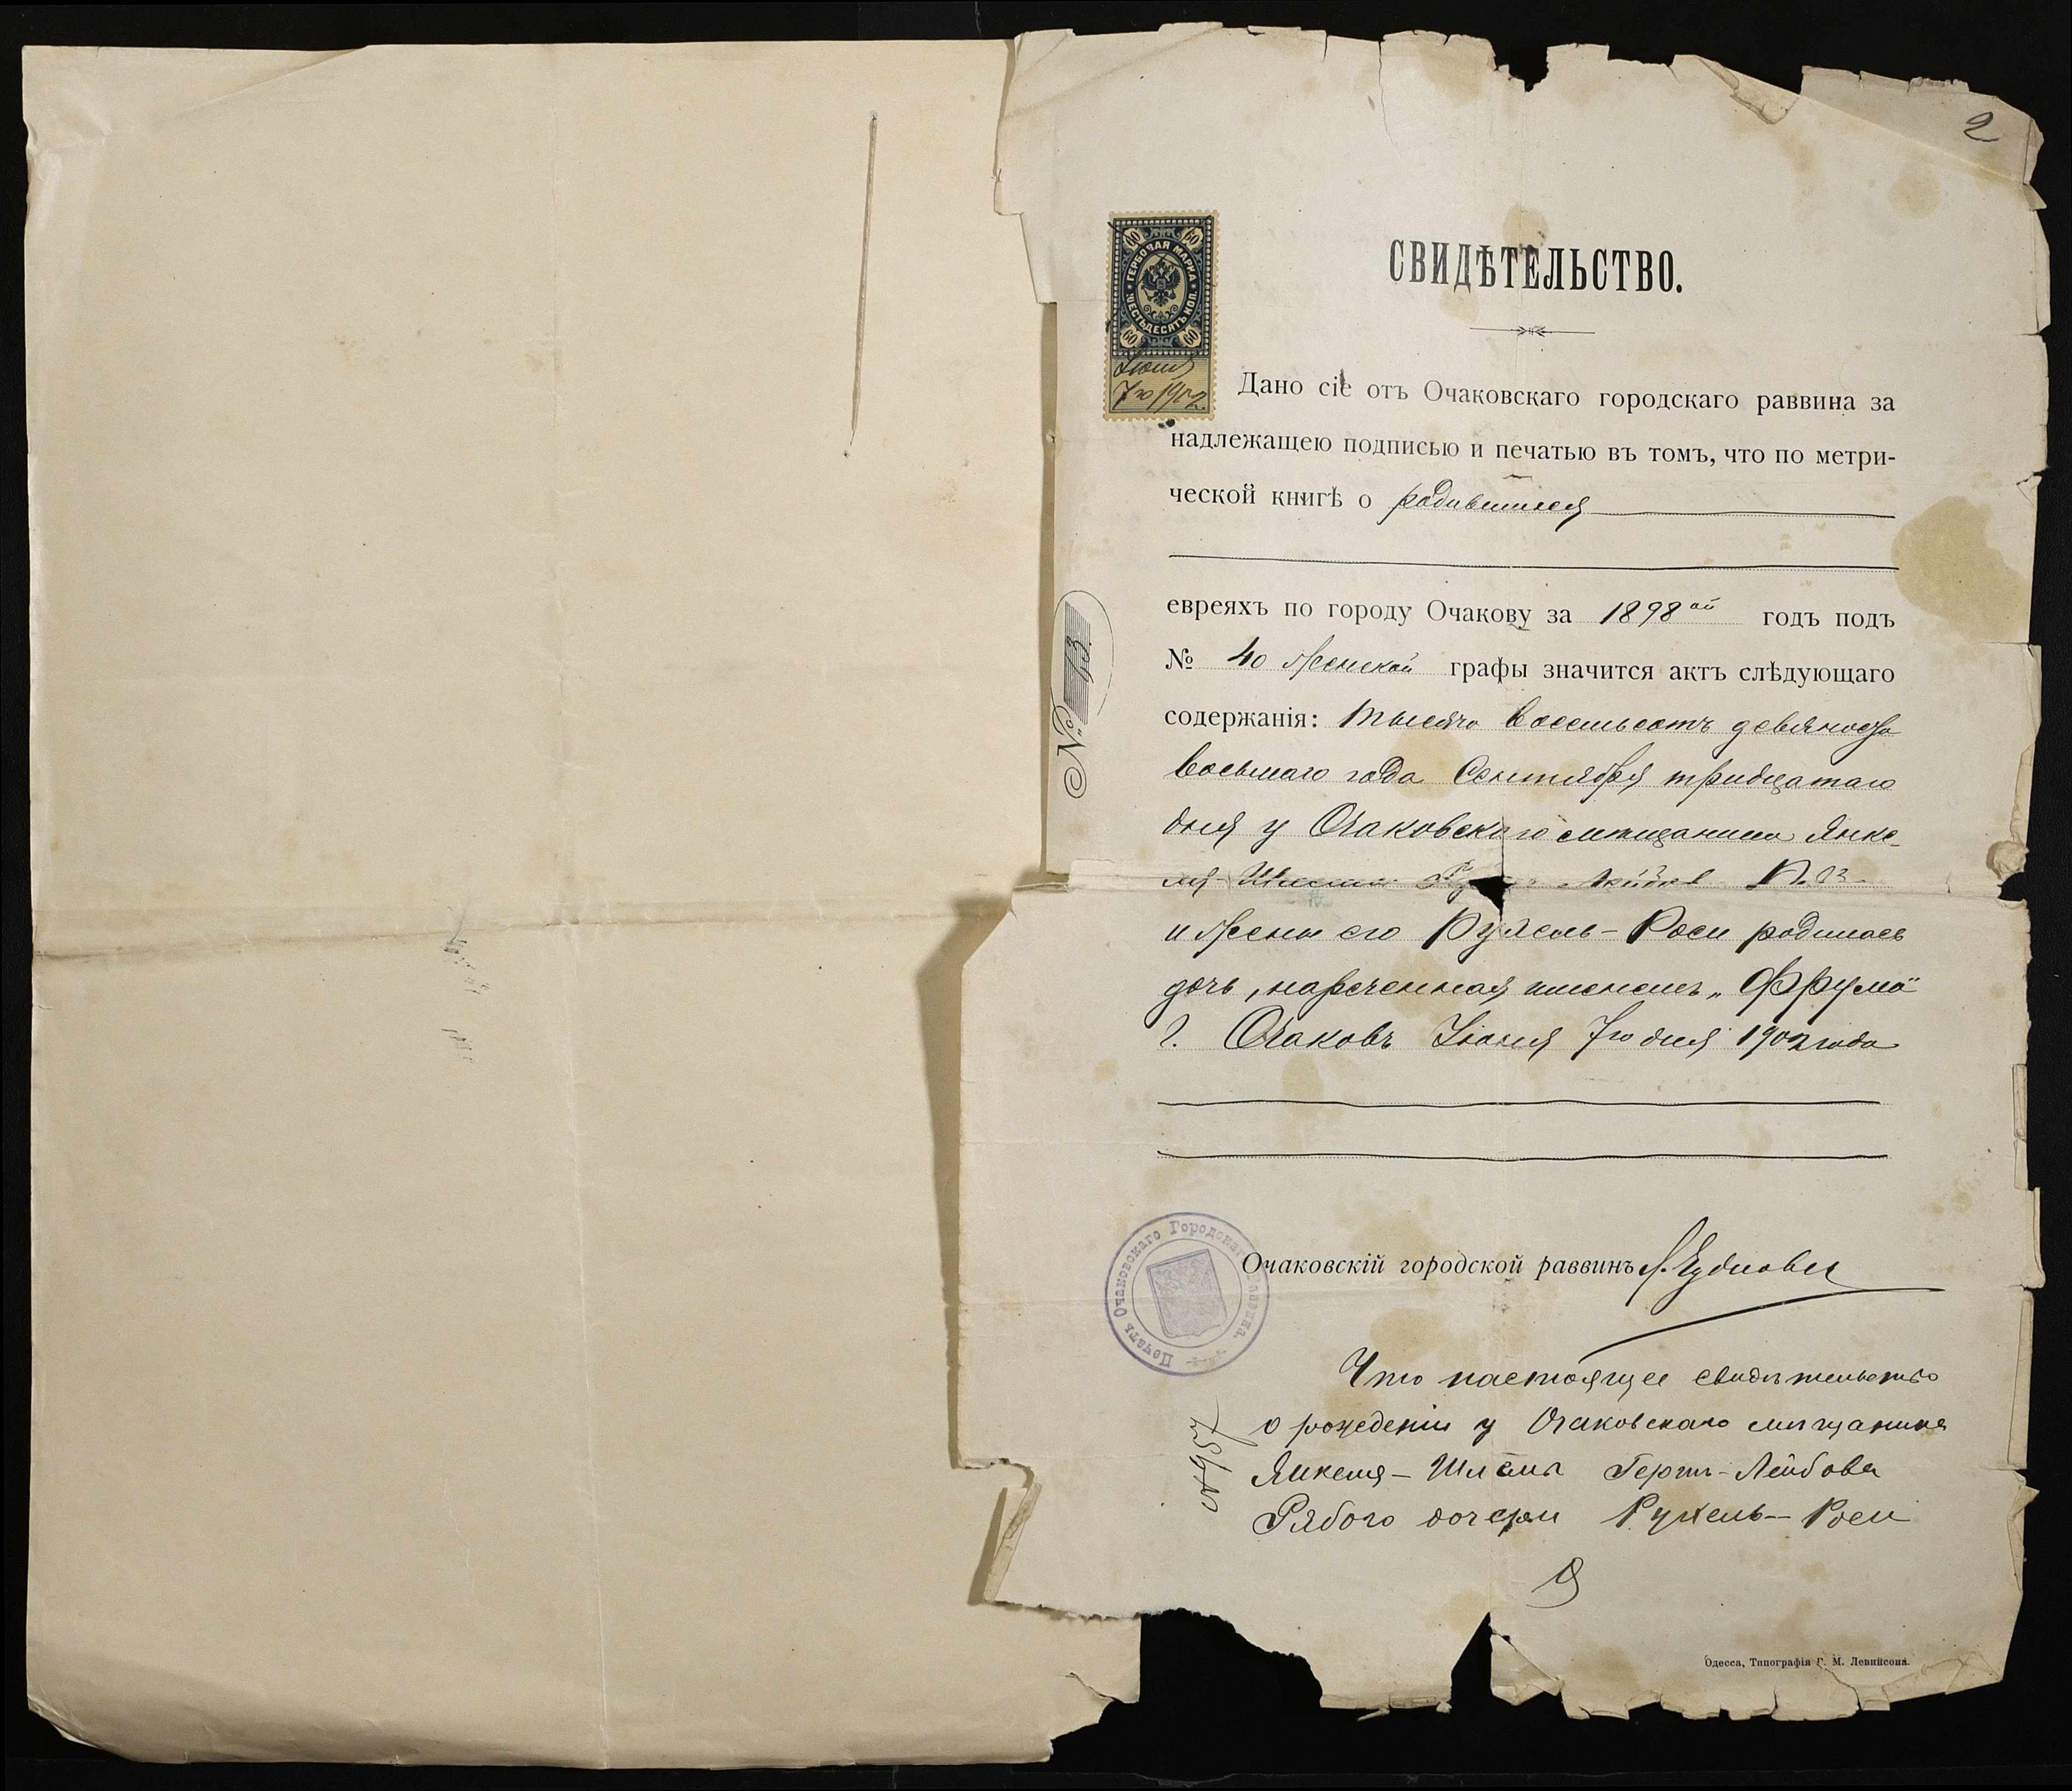 2
СВИДѢТЕЛЬСТВО.
60 60
ГЕРБОВАЯ МАРКА
ШЕСТЬДЕСЯТЪ КОП.
60 60
Іюня
7го 1902
Дано сіе отъ Очаковскаго городскаго раввина за
надлежащею подписью и печатью въ томъ, что по метри-
ческой книгѣ о родившихся
евреяхъ по городу Очакову за 1898ой годъ подъ
№ 40 женской графы значится актъ слѣдующаго
содержанія: Тысяча восемьсотъ девяносто
восьмаго года Сентября тридцатаго
дня у Очаковскаго мѣщанина Янке-
ля-Шлемы
и жены его Рухель-Роси родилась
дочь, нареченная именемъ „Фрума"
г. Очаковъ Іюня 7го дня 1902 года
№ 93.
Очаковскій городской раввинъ
Печать Очаковскаго Городскаго Раввина.
Что настоящее свидѣтельство
о рожденіи у Очаковскаго мѣщанина
Янкеля-Шлёмы Герш-Лейбова
Рябого дочери Рухель-Роси
Одесса, Типографія Г. М. Левинсона.